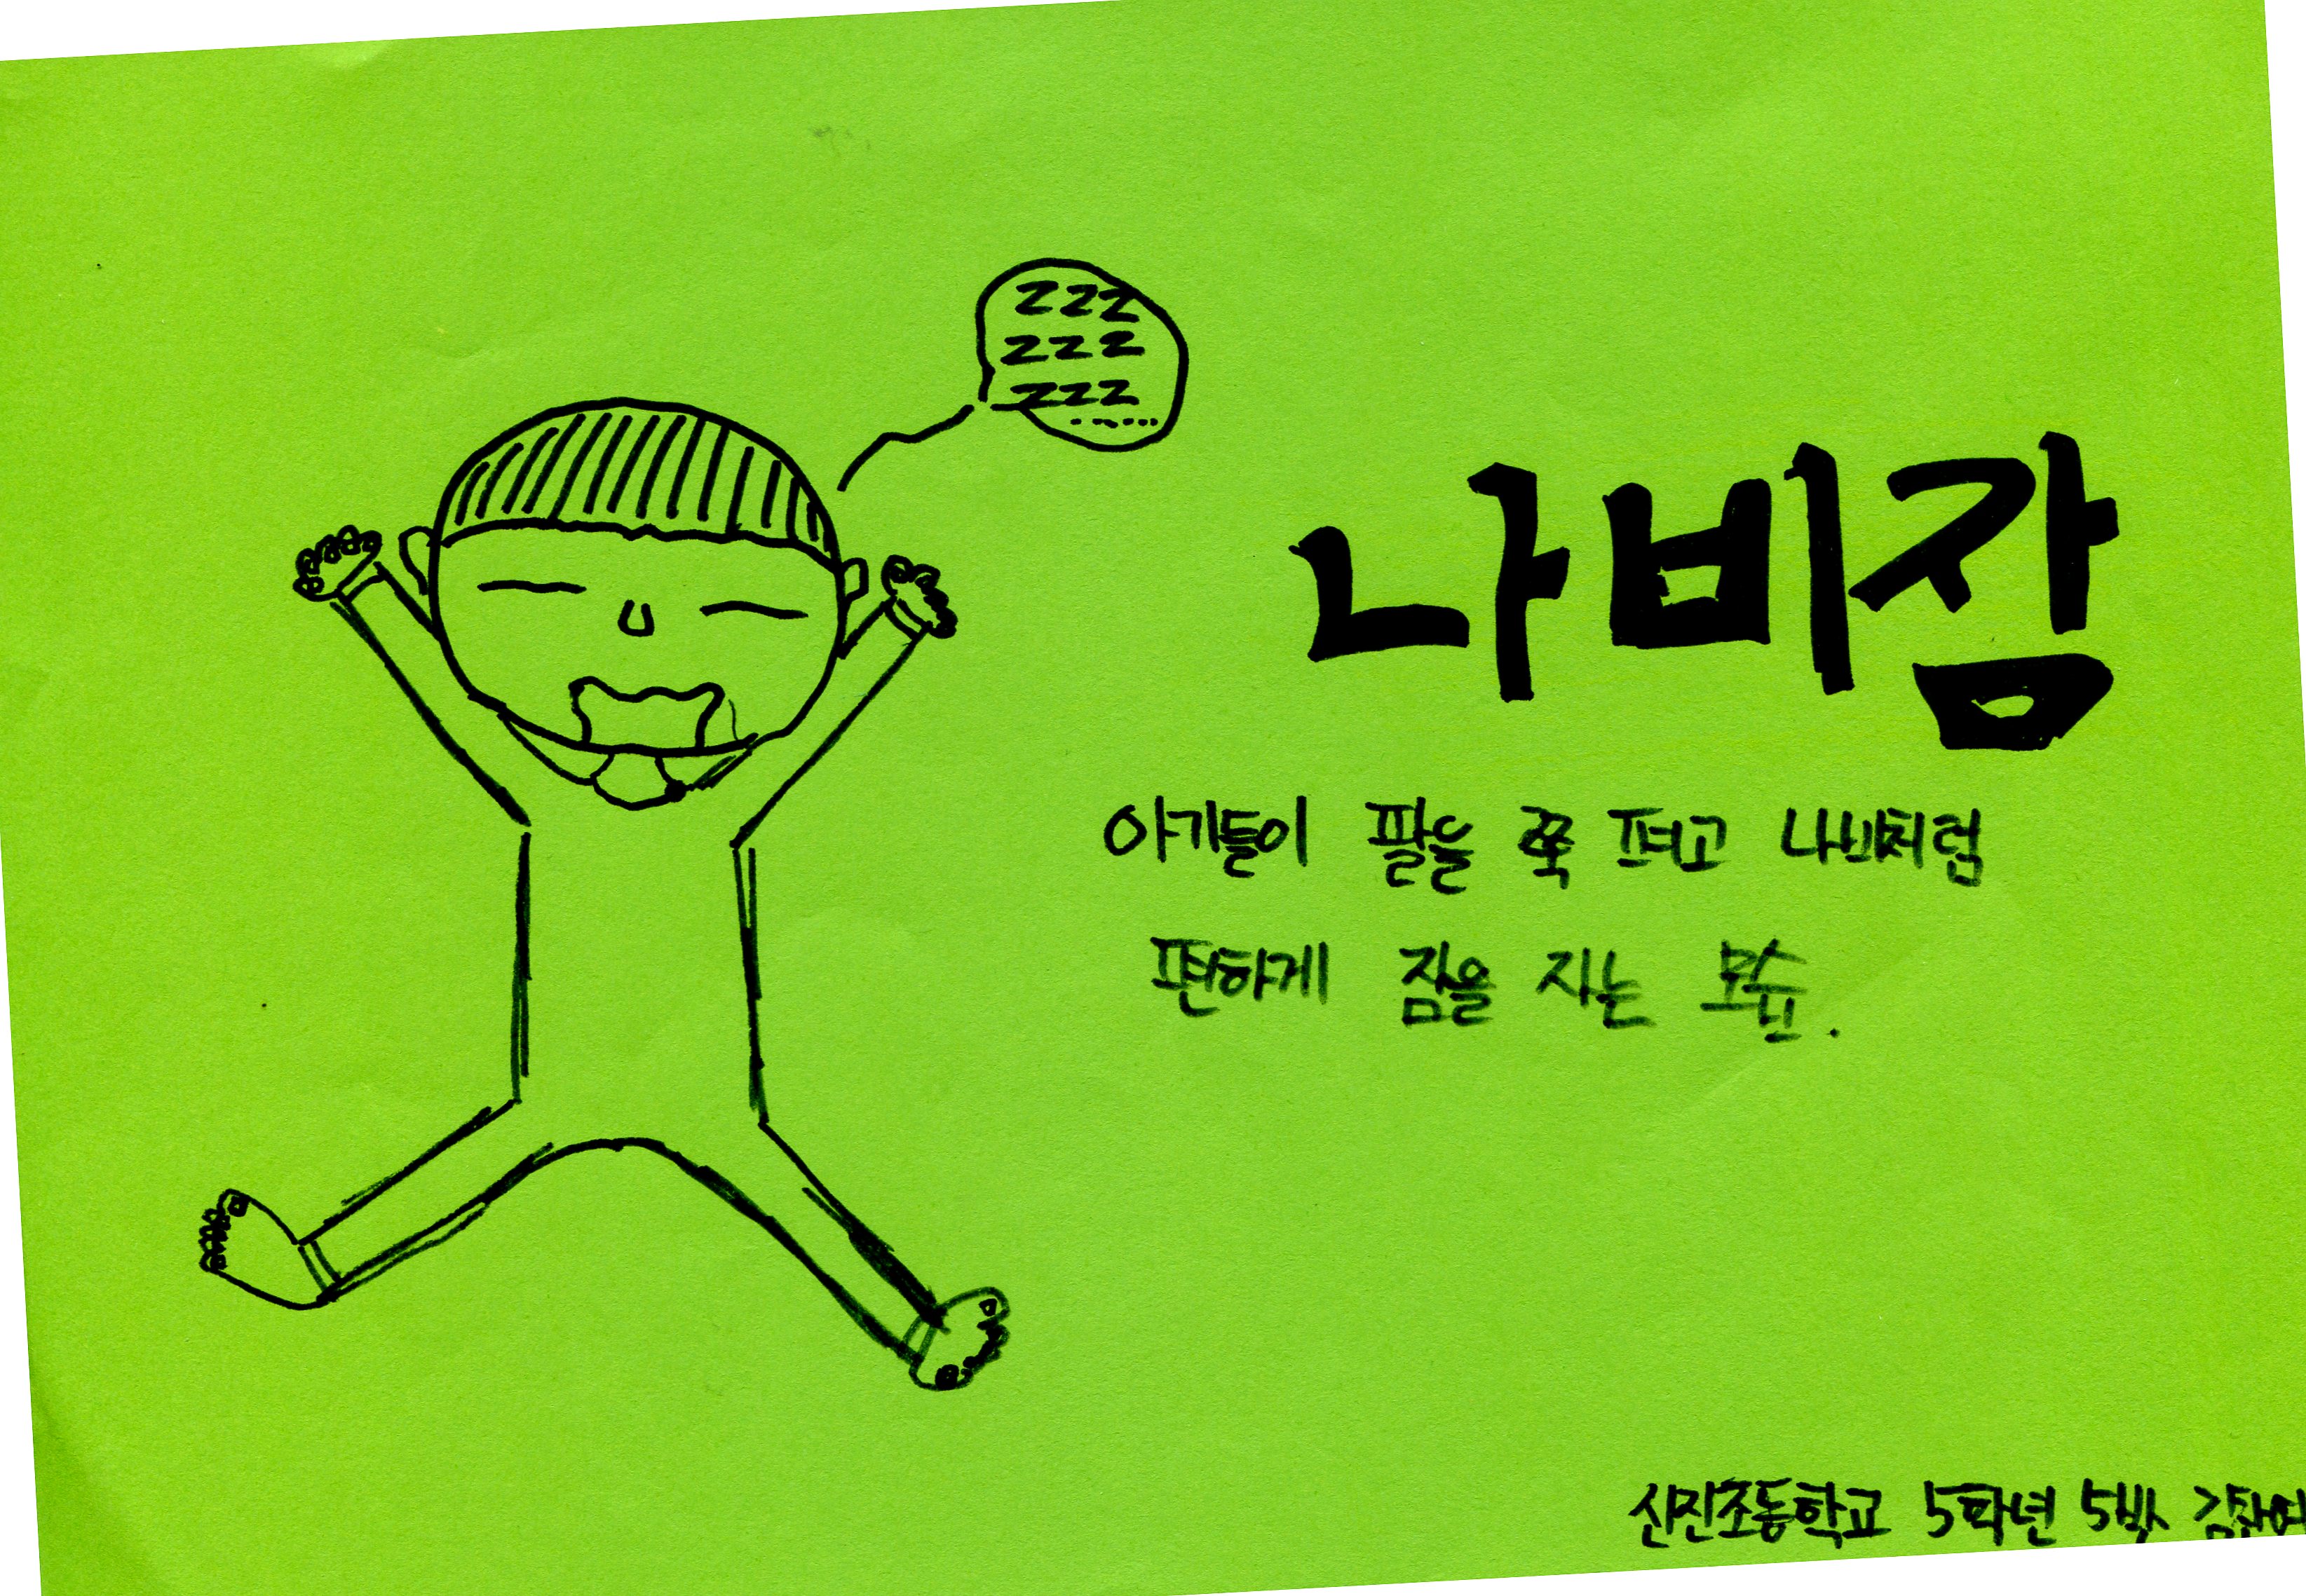 zzz
zzz
zzz
......
나비잠
아기들이 팔을 쭉 펴고 나비처럼
편하게 잠을 자는 모습.
신진초등학교 5학년 5반